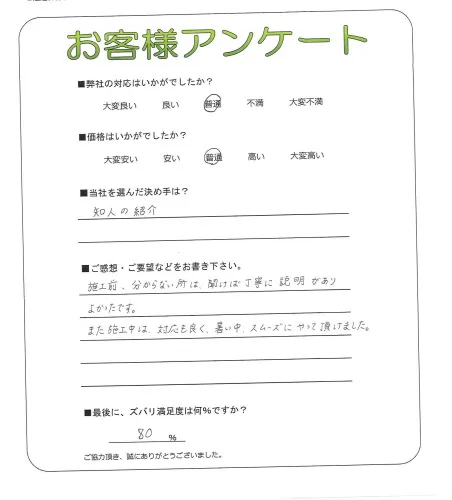 お客様アンケート
■弊社の対応はいかがでしたか？
大変良い 良い 普通 不満 大変不満
■価格はいかがでしたか？
大変安い 安い 普通 高い 大変高い
■当社を選んだ決め手は？
知人の紹介
■ご感想・ご要望などをお書き下さい。
施工前、分からない所は、聞けば丁寧に説明があり
よかたです。
また施工中は、対応も良く、暑い中、スムーズにやって頂けました。
■最後に、ズバリ満足度は何％ですか？
80 ％
ご協力頂き、誠にありがとうございました。